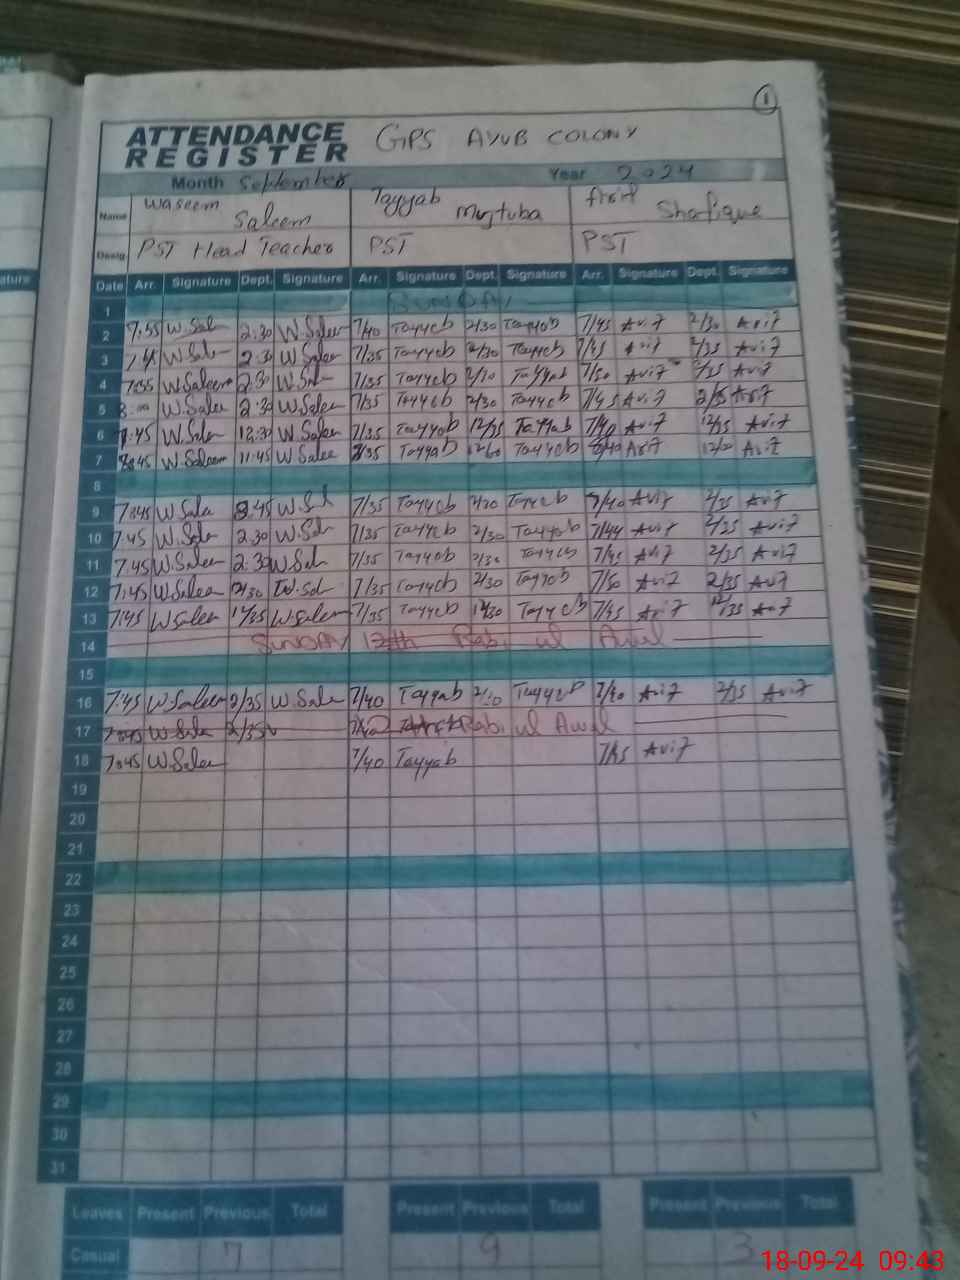 1
ATTENDANCE REGISTER GPS AYUB COLONY
Month September Year 2024
Name Waseem Saleem Tayyab Mujtuba Arif Shafique
Desig. PST Head Teacher PST PST
Date Arr. Signature Dept. Signature Arr. Signature Dept. Signature Arr. Signature Dept. Signature
1 SUNDAY
2 7:55 W.Sal 2:30 W.Saleem 7/40 Tayyab 2/30 Tayyab 7/45 Arif 2/30 Arif
3 W.Sale 2:30 W.Saleem 7/35 Tayyab 2/30 Tayyab 7/45 Arif 2/35 Arif
4 7:55 W.Saleem 2:30 W.Sal 7/35 Tayyab Tayyab 7/50 Arif 2/35 Arif
5 8:00 W.Salee 2:30 W.Salee 7/35 Tayyab 2/30 Tayyab 7/45 Arif 2/35 Arif
6 7:45 W.Sale 12:30 W.Salee 7/35 Tayyab 12/35 Tayyab 7/40 Arif 12/35 Arif
7 W.Saleem 11:45 W.Salee 7/35 Tayyab Tayyab Arif Arif
8
9 7:45 W.Sale W.Sal 7/35 Tayyab 2/30 Tayyab 7/40 Arif 2/35 Arif
10 7.45 W.Sale 2.30 W.Sal 7/35 Tayyab 2/30 Tayyab 7/44 Arif 2/35 Arif
11 7.45 W.Saleem 2:30 W.Sal 7/35 Tayyab 2/30 Tayyab 7/45 Arif 2/35 Arif
12 7:45 W.Saleem 2/30 W.Sal 7/35 Tayyab 2/30 Tayyab 7/50 Arif 2/35 Arif
13 7:45 W.Salee 12/35 W.Saleem 7/35 Tayyab 12/30 Tayyab 7/45 Arif 12/35 Arif
14 SUNDAY 12th Rabi ul Awal
15
16 7:45 W.Saleem 2/35 W.Sale 7/40 Tayyab Tayyab 7/40 Arif 2/35 Arif
17 W.Sale 2/35 Rabi ul Awal
18 7:45 W.Salee 7/40 Tayyab 7/45 Arif
19
20
21
22
23
24
25
26
27
28
29
30
31
Leaves Present Previous Total Present Previous Total Present Previous Total
Casual 7 9 3
18-09-24 09:43